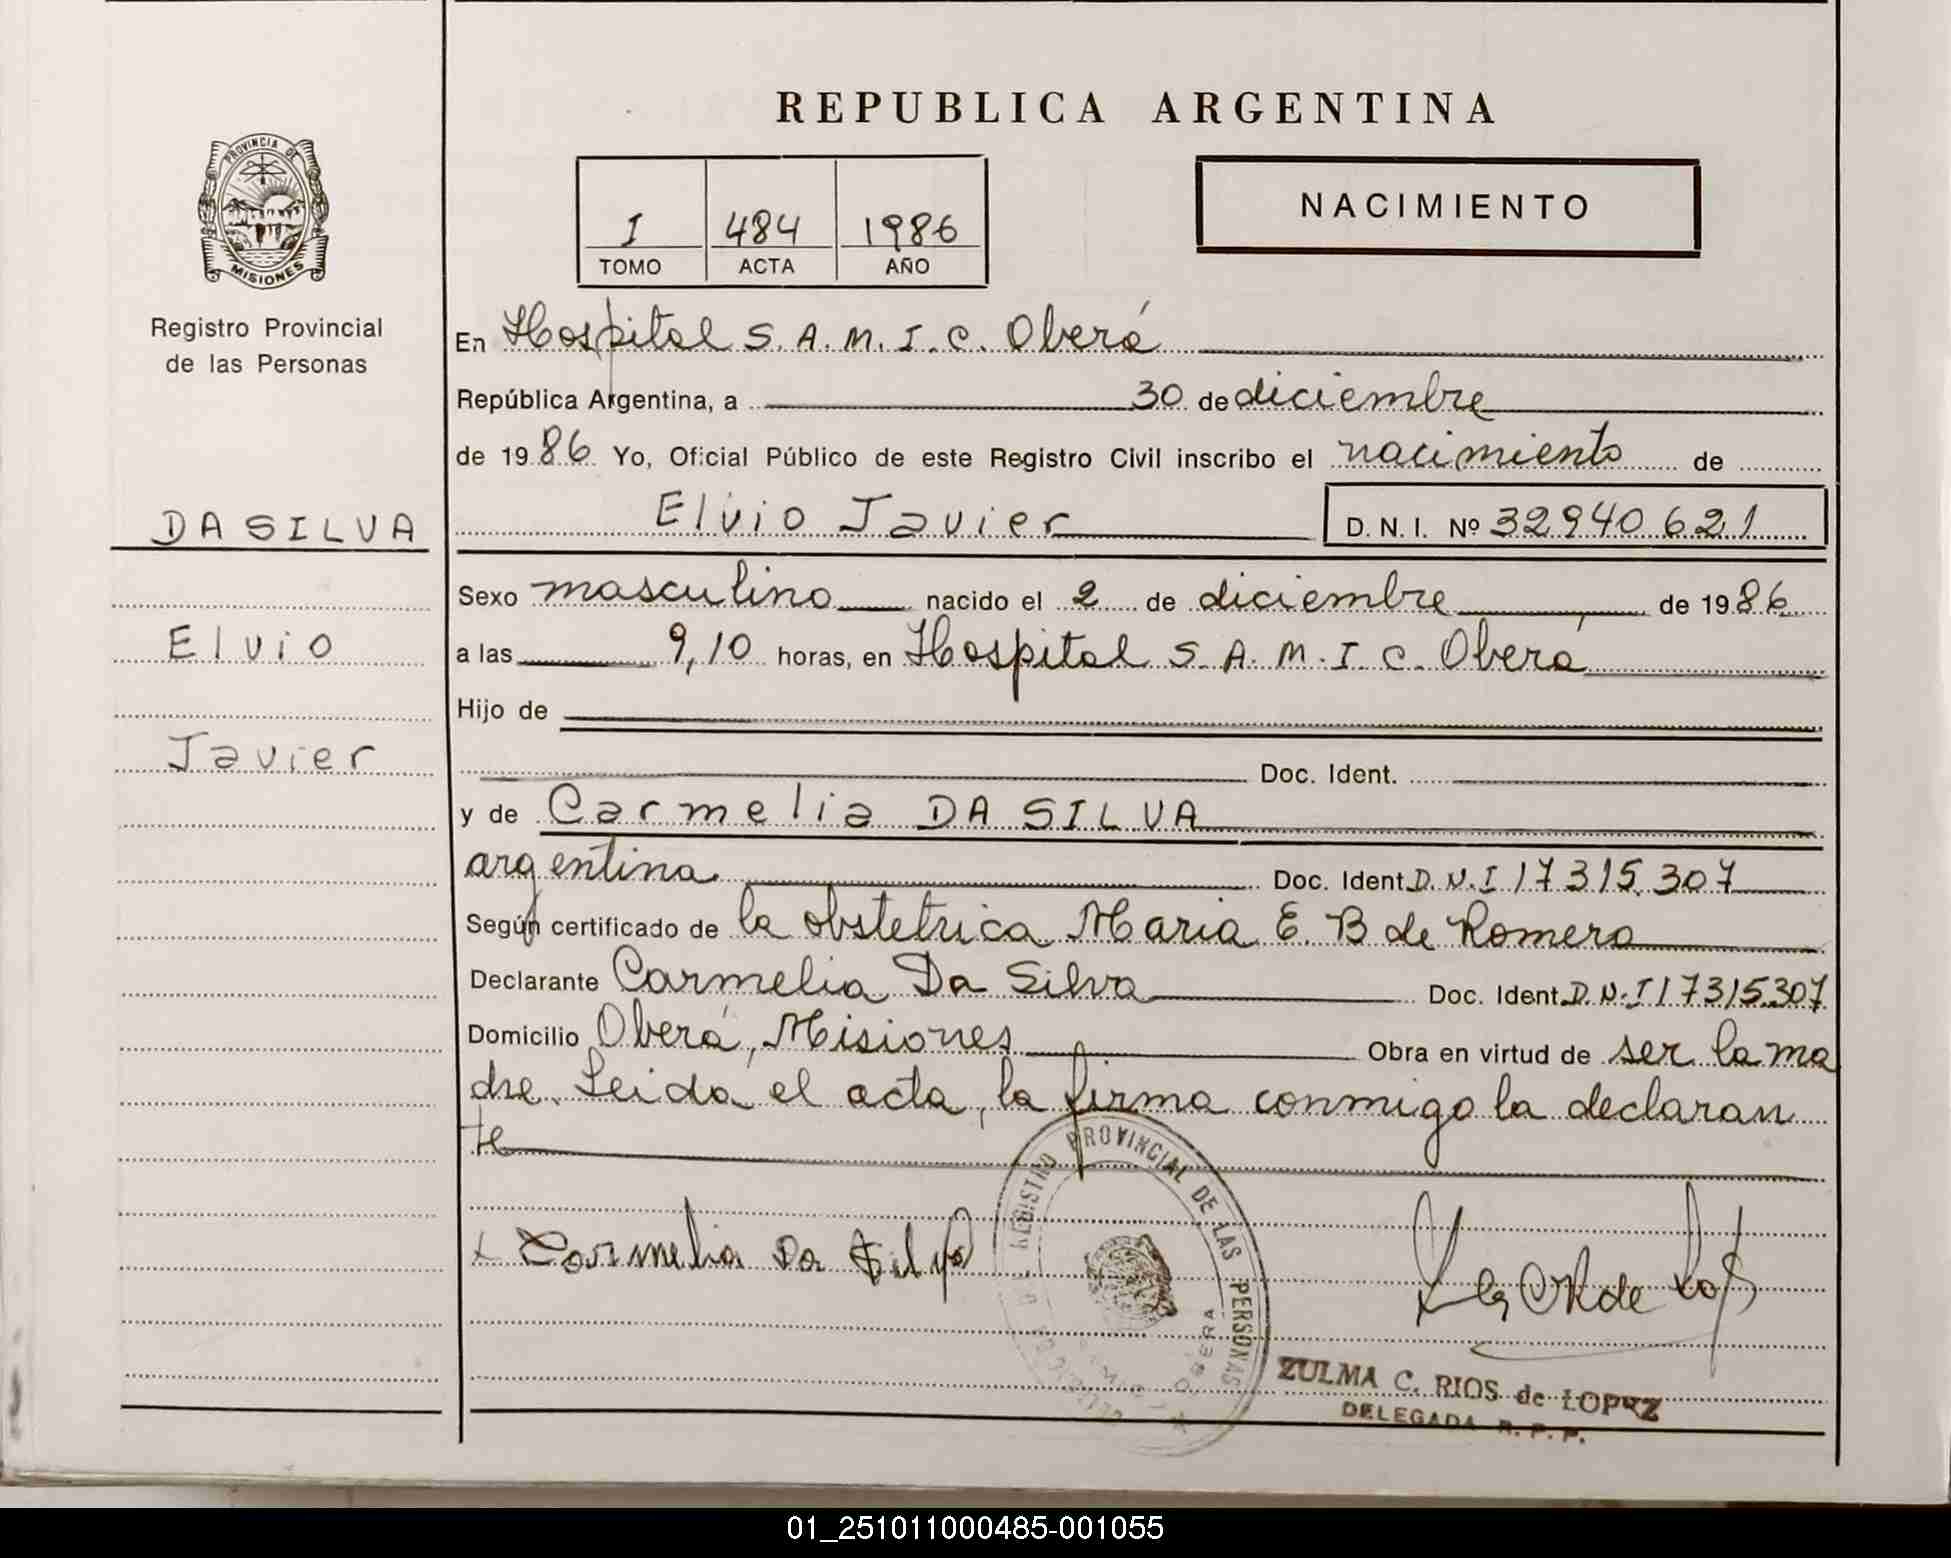 REPUBLICA ARGENTINA
PROVINCIA DE
MISIONES
Registro Provincial
de las Personas
I 484 1986
TOMO ACTA AÑO
NACIMIENTO
En Hospital S. A. M. I. C. Oberá
República Argentina, a 30 de diciembre
de 1986 Yo, Oficial Público de este Registro Civil inscribo el nacimiento de
DA SILVA
Elvio Javier D. N. I. Nº 32940621
Sexo masculino nacido el 2 de diciembre de 1986
Elvio
a las 9,10 horas, en Hospital S. A. M. I. C. Oberá
Hijo de
Javier
Doc. Ident.
y de Carmelia DA SILVA
argentina Doc. Ident D.N.I 17315.307
Según certificado de la obstetrica Maria E. B de Romero
Declarante Carmelia Da Silva Doc. Ident. D.N.I 17315.307
Domicilio Oberá, Misiones Obra en virtud de ser la ma
dre. Leida el acta, la firma conmigo la declaran
te
REGISTRO PROVINCIAL DE LAS PERSONAS
OBERA
Carmelia Da Silva
ZULMA C. RIOS de LOPEZ
DELEGADA R. P. P.
01_251011000485-001055